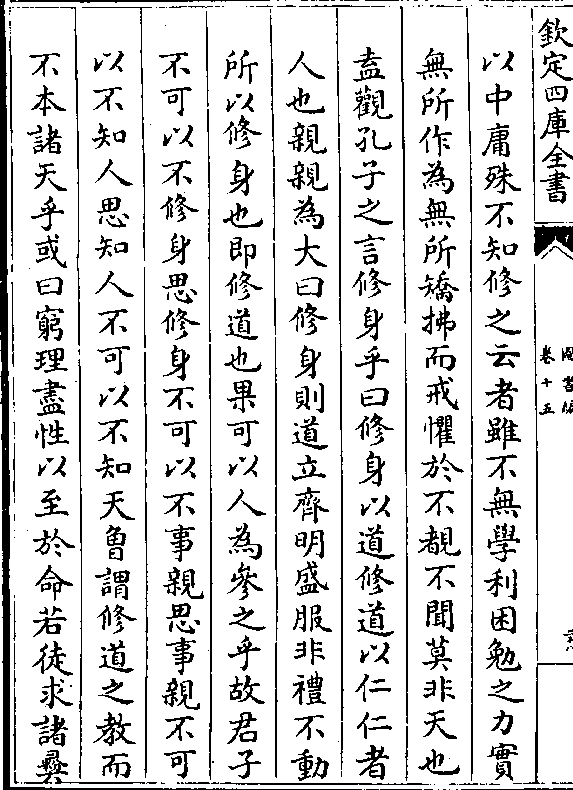 欽定四庫全書
圖書編
卷十五
以中庸殊不知修之云者雖不無學利困勉之力實
無所作為無所矯拂而戒懼於不覩不聞莫非天也
盍觀孔子之言修身乎曰修身以道修道以仁仁者
人也親親為大曰修身則道立齊明盛服非禮不動
所以修身也即修道也果可以人為參之乎故君子
不可以不修身思修身不可以不事親思事親不可
以不知人思知人不可以不知天曾謂修道之教而
不本諸天乎或曰窮理盡性以至於命若徒求諸彞